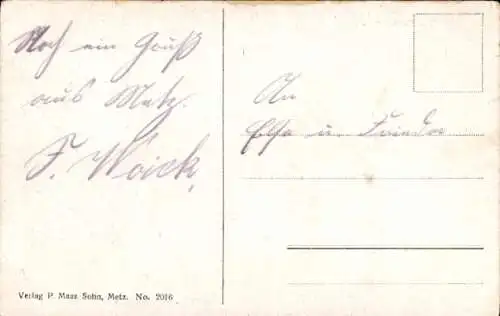 Noch ein Gruß
aus Metz.
F. Woick.
An
Else u. Frieda
Verlag P. Maaz Sohn, Metz. No. 2016